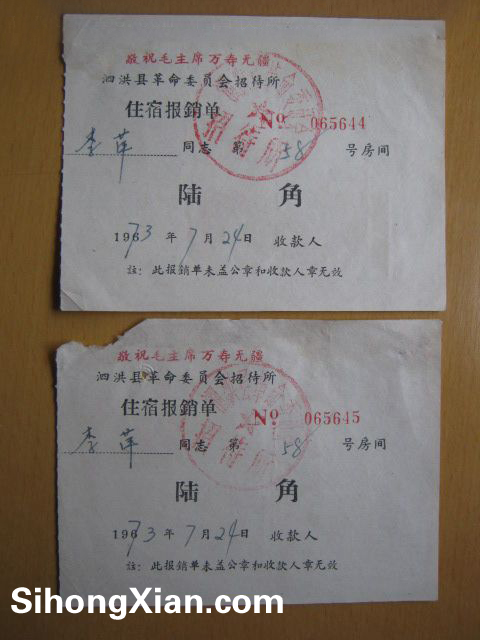 敬祝毛主席万寿无疆
泗洪县革命委员会招待所
住宿报銷单
No 065644
李萍 同志 第 58 号房间
陆 角
1973 年 7 月 24 日 收款人
註：此报銷单未盖公章和收款人章无效
招待所
敬祝毛主席万寿无疆
泗洪县革命委员会招待所
住宿报銷单
No 065645
李萍 同志 第 58 号房间
陆 角
1973 年 7 月 24 日 收款人
註：此报銷单未盖公章和收款人章无效
招待所
SihongXian.com